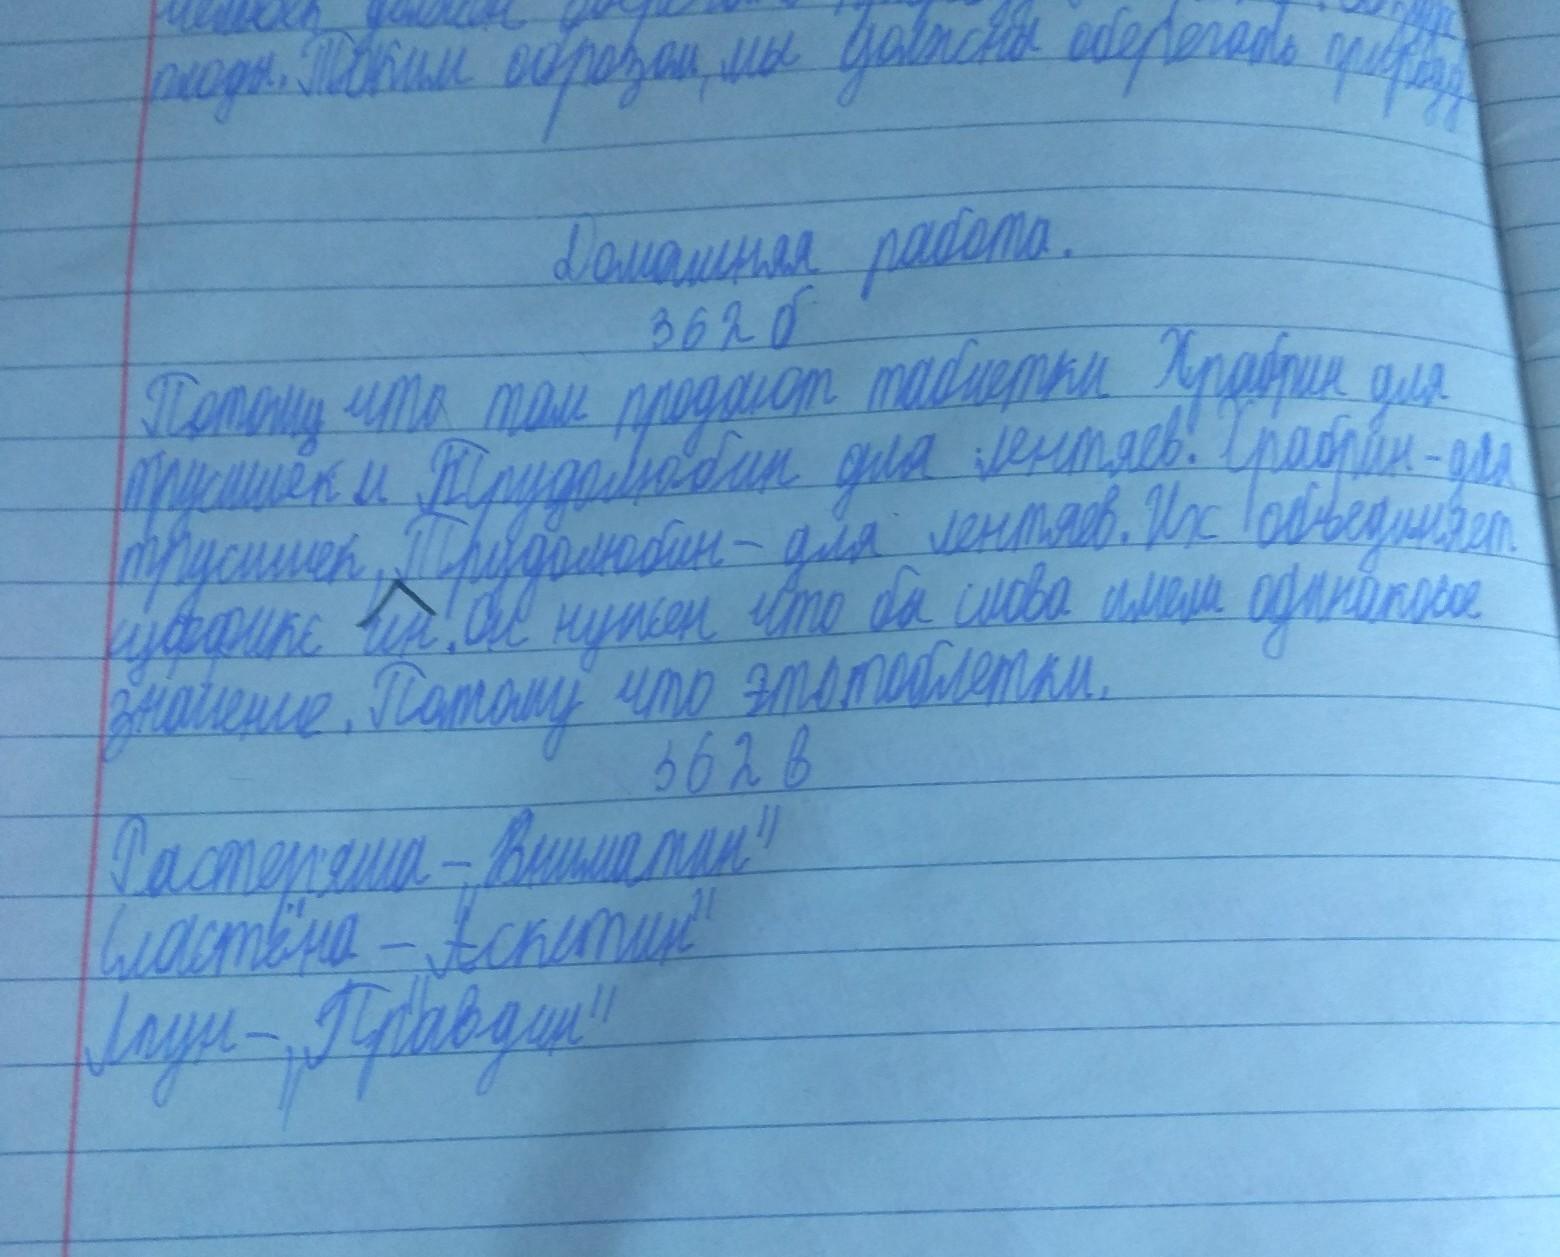 человек должен
плоды. Таким образом, мы должны оберегать природу
Домашняя работа.
362 б
Потому что там продают таблетки Храбрин для
трусишек и Трудолюбин для лентяев. Храбрин - для
трусишек, Трудолюбин - для лентяев. Их объединяет
суффикс ин. Он нужен что бы слова имели одинаковое
значение. Потому что этотоблетки.
362 в
Растеряша - „Вниматин"
Сластёна - „Аскетин"
Лгун - „Правдин"